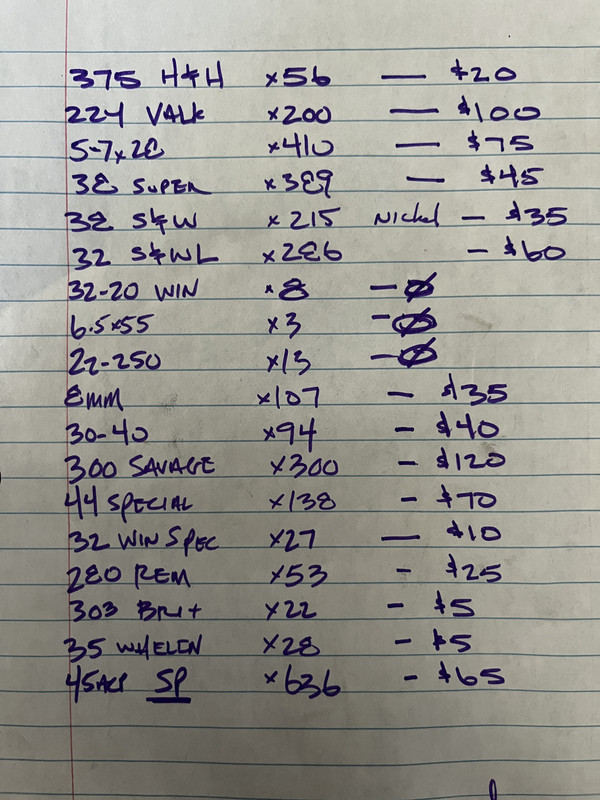 375 H&H x56 — $20
224 VALK x200 — $100
5-7x28 x410 — $75
38 SUPER x389 — $45
38 S&W x215 Nickel — $35
32 S&WL x286 — $60
32-20 WIN x8 — Ø
6.5x55 x3 — Ø
22-250 x13 — Ø
8MM x107 — $35
30-40 x94 — $40
300 SAVAGE x300 — $120
44 SPECIAL x138 — $70
32 WIN SPEC x27 — $10
280 REM x53 — $25
303 BRIT x22 — $5
35 WHELEN x28 — $5
45ACP SP x636 — $65